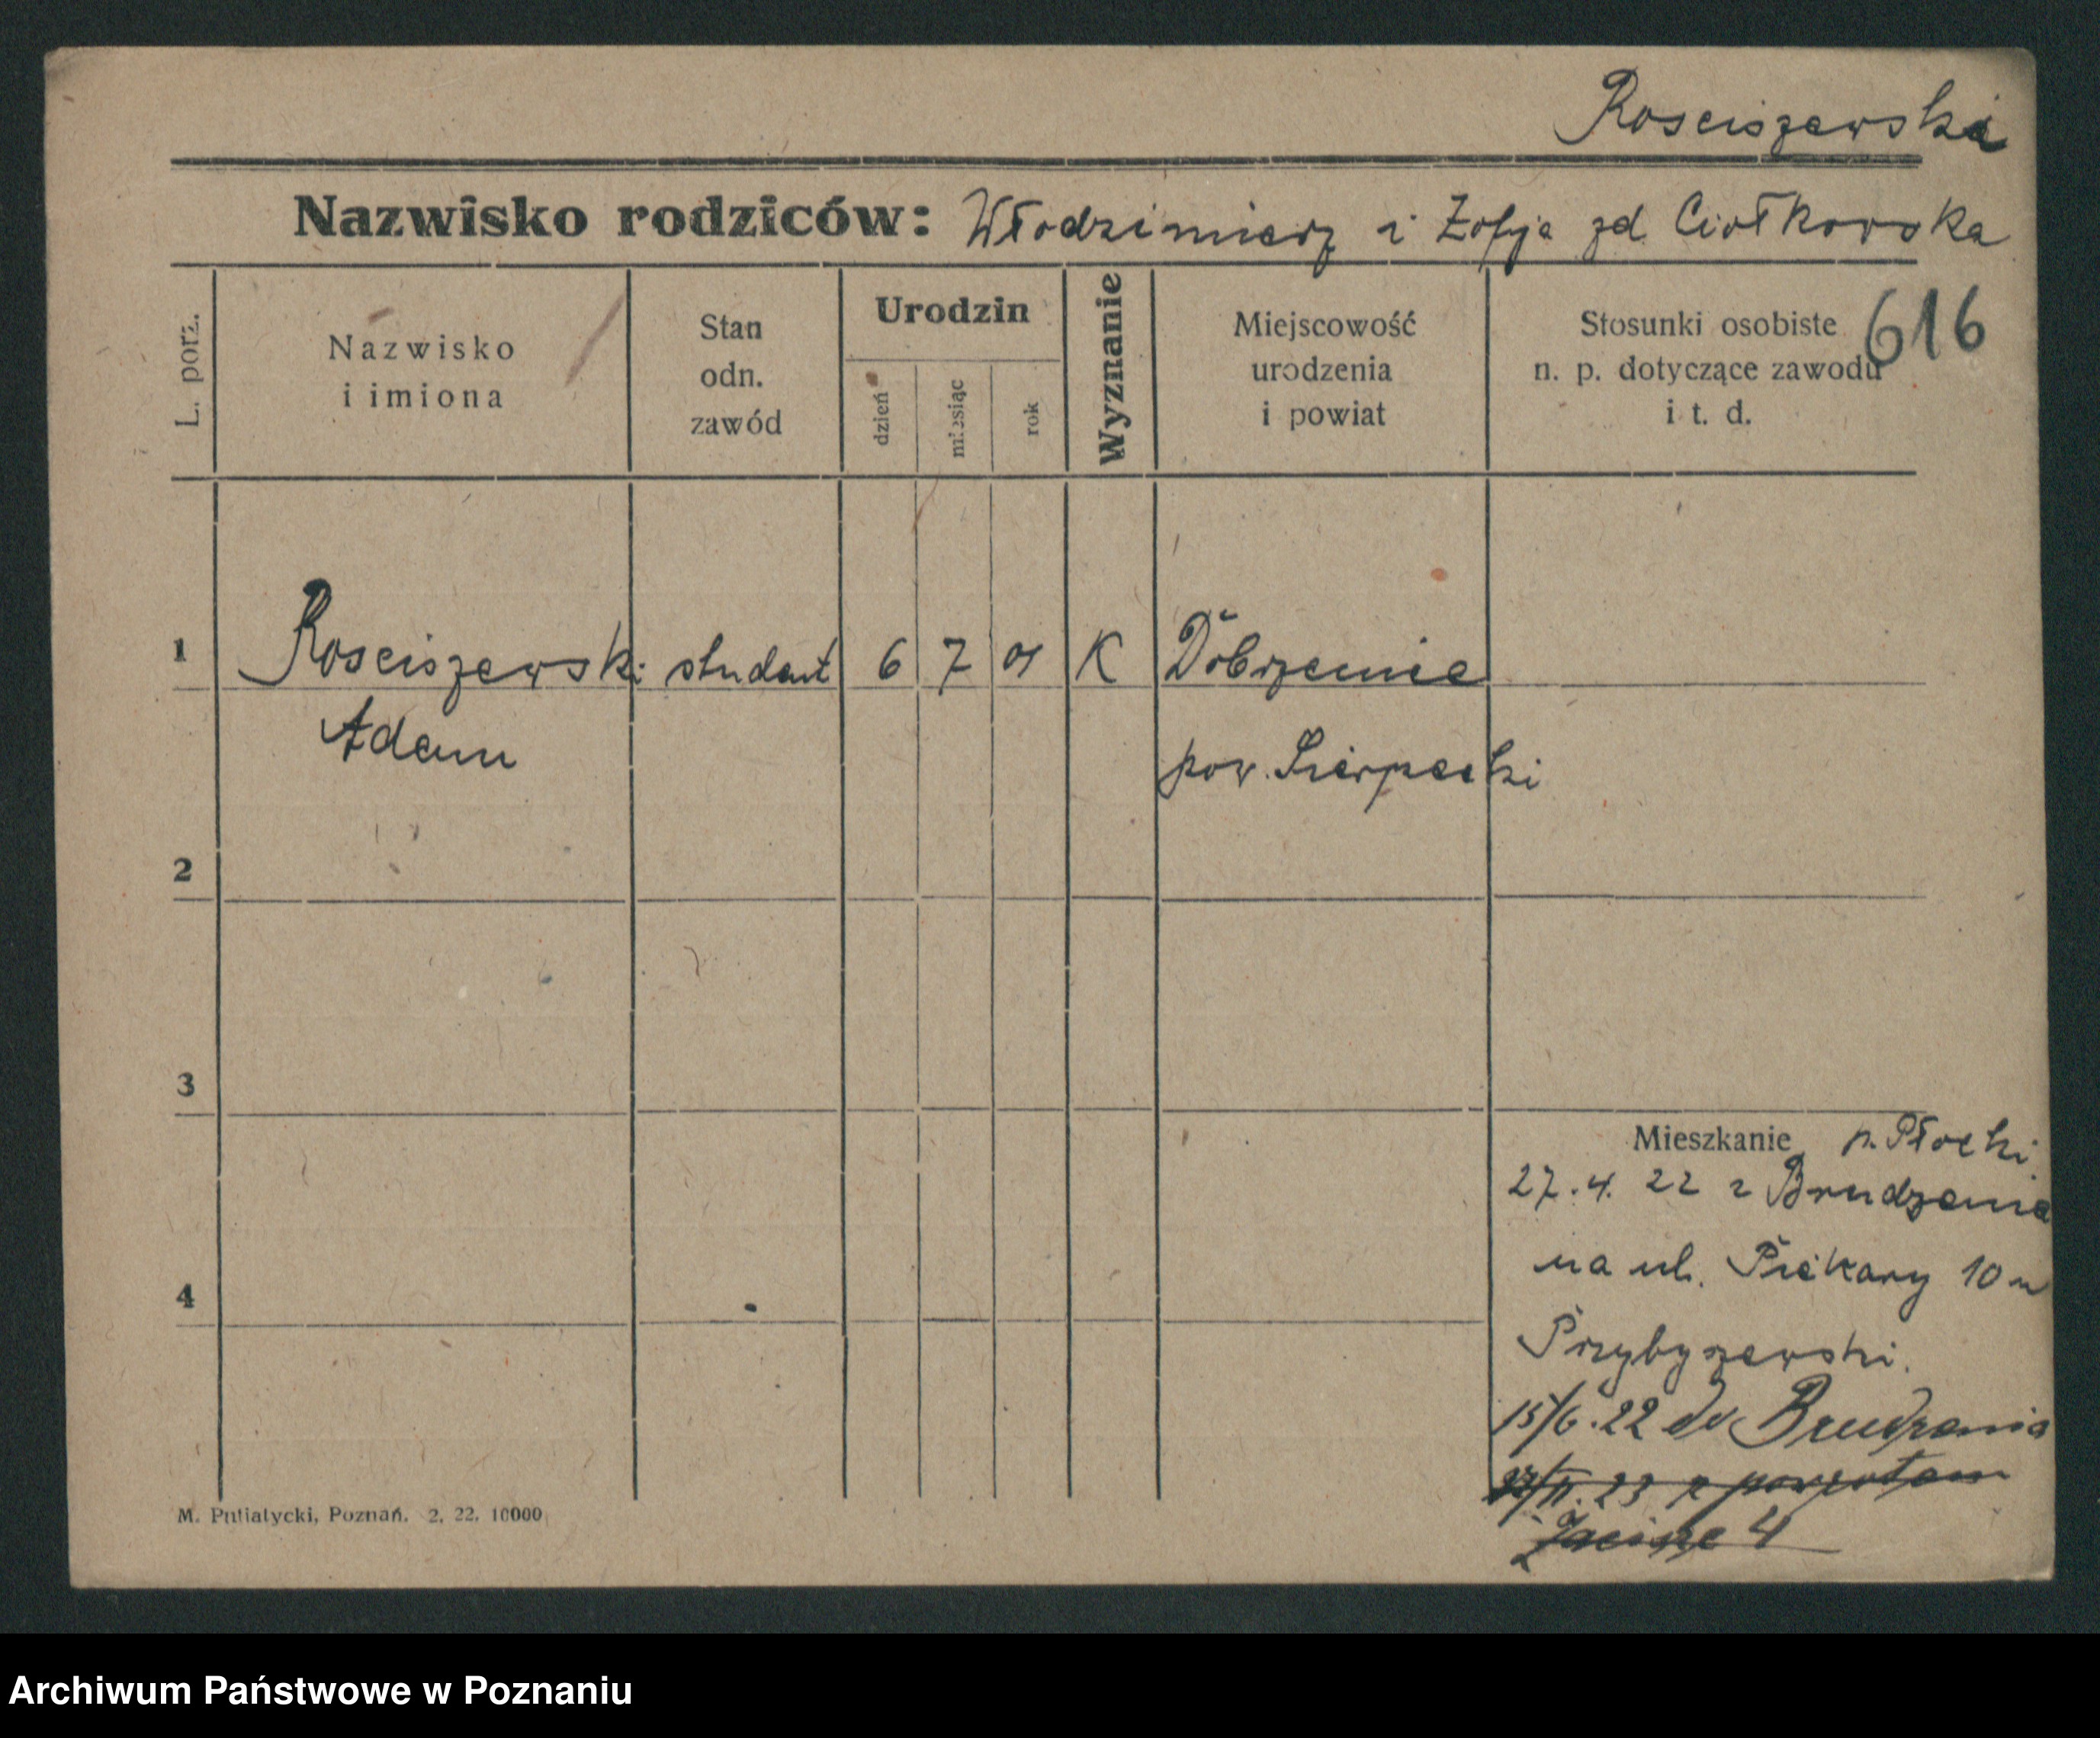 Rosciszewski
Nazwisko rodziców: Włodzimierz i Zofja zd Ciołkowska
L. porz.
Nazwisko
i imiona
Stan
odn.
zawód
Urodzin
dzień
miesiąc
rok
Wyznanie
Miejscowość
urodzenia
i powiat
Stosunki osobiste
n. p. dotyczące zawodu
i t. d.
616
1 Rosciszewski student 6 7 01 K Dobrzenice
Adam pow. Sierpecki
2
3
Mieszkanie p. Płocki
27.4.22 z Brudzenia
4
na ul. Piekary 10 u
Przybyszewski.
15/6.22 do Brudzenia
23 z powrotem
4
M. Putiatycki, Poznań. 2, 22, 10000
Archiwum Państwowe w Poznaniu